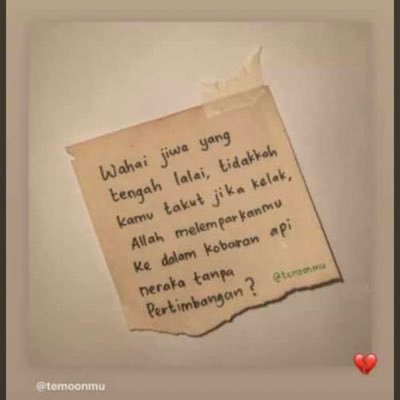 Wahai jiwa yang
tengah lalai, tidakkah
kamu takut jika kelak,
Allah melemparkanmu
ke dalam kobaran api
neraka tanpa
Pertimbangan?
@temoonmu
@temoonmu